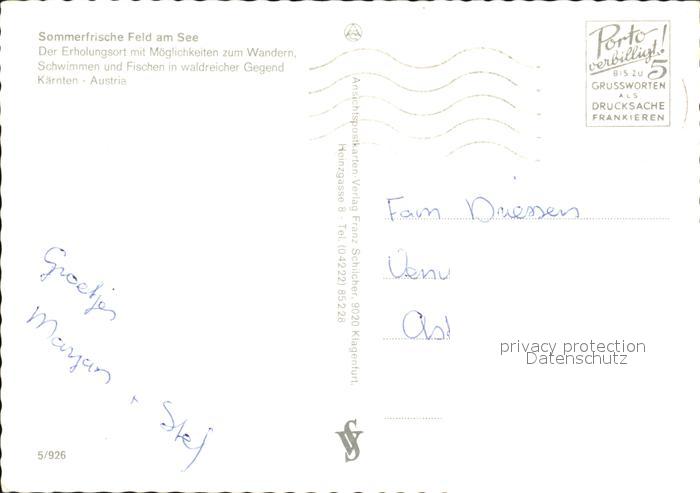 Sommerfrische Feld am See
Der Erholungsort mit Möglichkeiten zum Wandern,
Schwimmen und Fischen in waldreicher Gegend
Kärnten - Austria
Groetjes
Marjan + Stef
5/926
Ansichtspostkarten-Verlag Franz Schilcher, 9020 Klagenfurt,
Heinzgasse 8 - Tel. (04222) 85228
Porto
verbilligt!
BIS ZU 5
GRUSSWORTEN
ALS
DRUCKSACHE
FRANKIEREN
Fam Driessen
privacy protection
Datenschutz